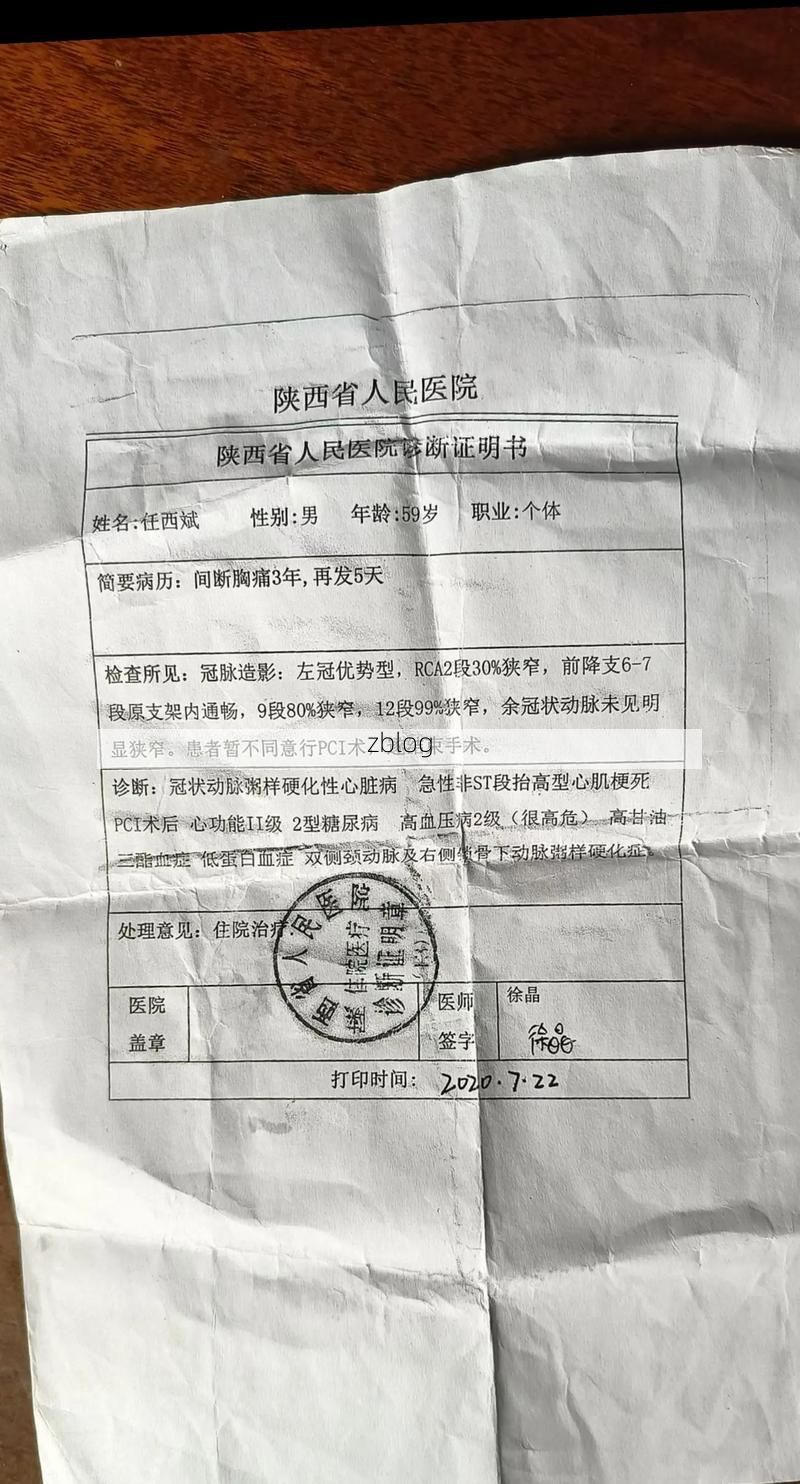 陕西省人民医院
陕西省人民医院诊断证明书
姓名:任西斌 性别:男 年龄:59岁 职业:个体
简要病历：间断胸痛3年,再发5天
检查所见：冠脉造影：左冠优势型，RCA2段30%狭窄，前降支6-7
段原支架内通畅，9段80%狭窄，12段99%狭窄，余冠状动脉未见明
显狭窄。患者暂不同意行PCI术 束手术。
zblog
诊断：冠状动脉粥样硬化性心脏病 急性非ST段抬高型心肌梗死
PCI术后 心功能II级 2型糖尿病 高血压病2级（很高危） 高甘油
三酯血症 低蛋白血症 双侧颈动脉及右侧锁骨下动脉粥样硬化症。
处理意见：住院治疗.
西省人民医院
住院医疗
诊断证明章
医院
盖章
医师
签字
徐晶
徐晶
打印时间：2020.7.22